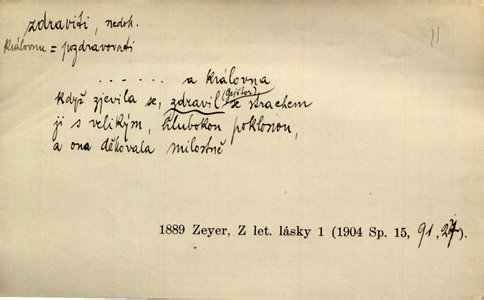 zdraviti, nedok.
královnu = pozdravovati
- - - - - - a královna
když zjevila se, zdravil (Nejstor) se strachem
ji s velikým, hlubokou poklonou,
a ona děkovala milostně
1889 Zeyer, Z let. lásky 1 (1904 Sp. 15, 91, 27).